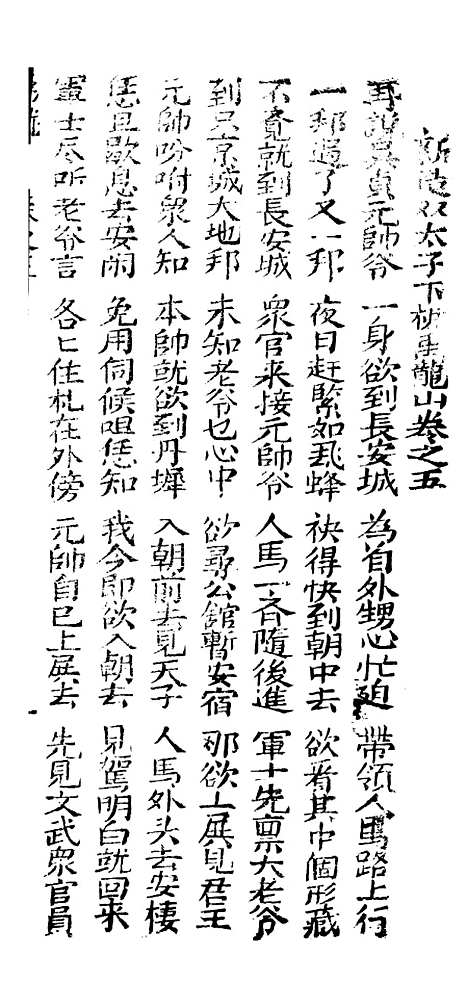 新造双太子下棚馬龍山卷之五
再說吳貞元帥爺 一身欲到長安城 為着外甥心忙迫 帶領人馬路上行
一邦過了又一邦 夜日赶緊如飛蜂 袂得快到朝中去 欲看其中個形藏
不覺就到長安城 衆官来接元帥爺 人馬一齐隨後進 軍士先禀大老爷
到只京城大地邦 未知老爷乜心中 欲尋公館暫安宿 那欲上展見君王
元帥吩咐衆人知 本帥就欲到丹墀 入朝前去見天子 人馬外头去安棲
恁且歇息去安閑 免用伺候咀恁知 我今即欲入朝去 見駕明白就回来
軍士尽听老爷言 各匕住札在外傍 元帥自己上展去 先見文武衆官員
卷之五